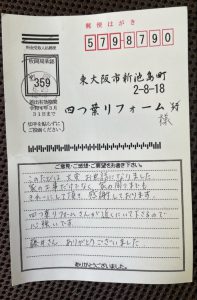 郵便はがき
5798790
料金受取人払郵便
枚岡局承認
359
差出有効期間
令和6年3月
31日まで
(切手を貼らずに
ご投函ください)
東大阪市新池島町
2-8-18
四つ葉リフォーム 行
様
ご意見・ご感想・ご要望をお書き下さい。
このたびは大変お世話になりました
家の工事だけでなく、家の周りまでも
きれいにして頂き、感謝しております。
四つ葉リフォームさんが近くにいて下さるので
心強いです
藤井さん ありがとうございました
ありがとうございました